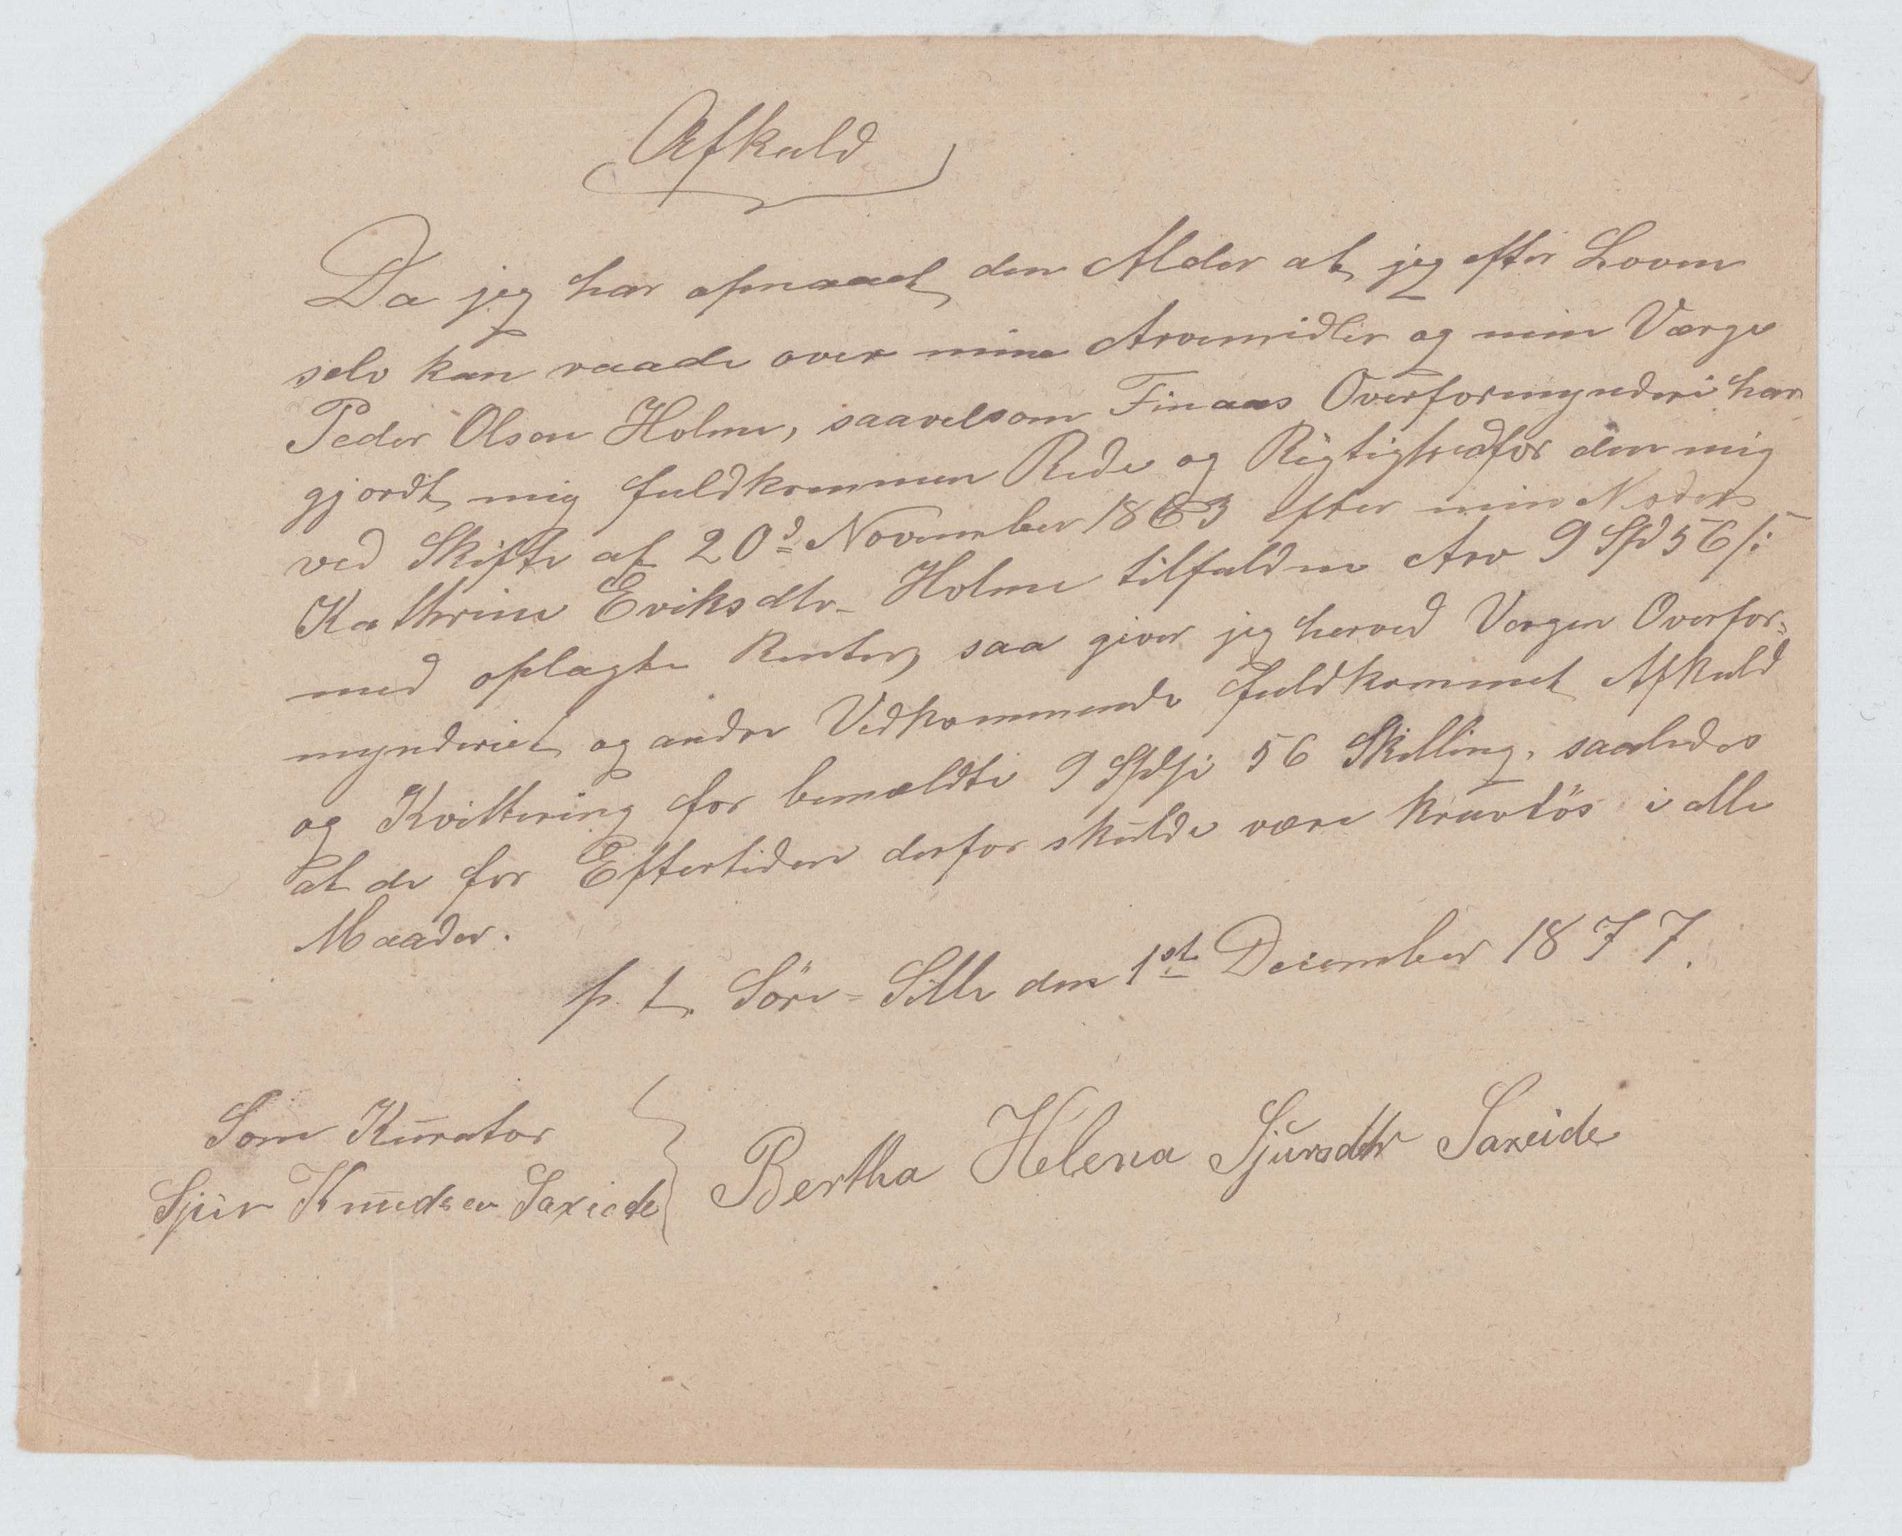 Afkald
Da jeg har opnaaet den Alder at jeg efter Loven
selv kan raade over mine Arvemidler og min Værge
Peder Olsen Holme, saavelsom Finaas Overformynderi har
gjordt mig fuldkommen Rede og Rigtighed for den mig
ved Skifte af 20d November 1863 efter min Moder
Kathrine Eriksdtr. Holme tilfaldne Arv 9 Spd 56 s:
med oplagte Renter, saa giver jeg herved Vergen Overfor-
mynderiet og andre Vedkommende fuldkommet Afkald
og Kvittering for bemældte 9 Spds 56 Skilling, saaledes
at de for Eftertiden derfor skulde være kravlös i alle
Maader.
p. t. Söre-Lille den 1st December 1877.
Som Kurator
Sjur Knudsen Saxeide
Bertha Helena Sjursdtr Saxeide